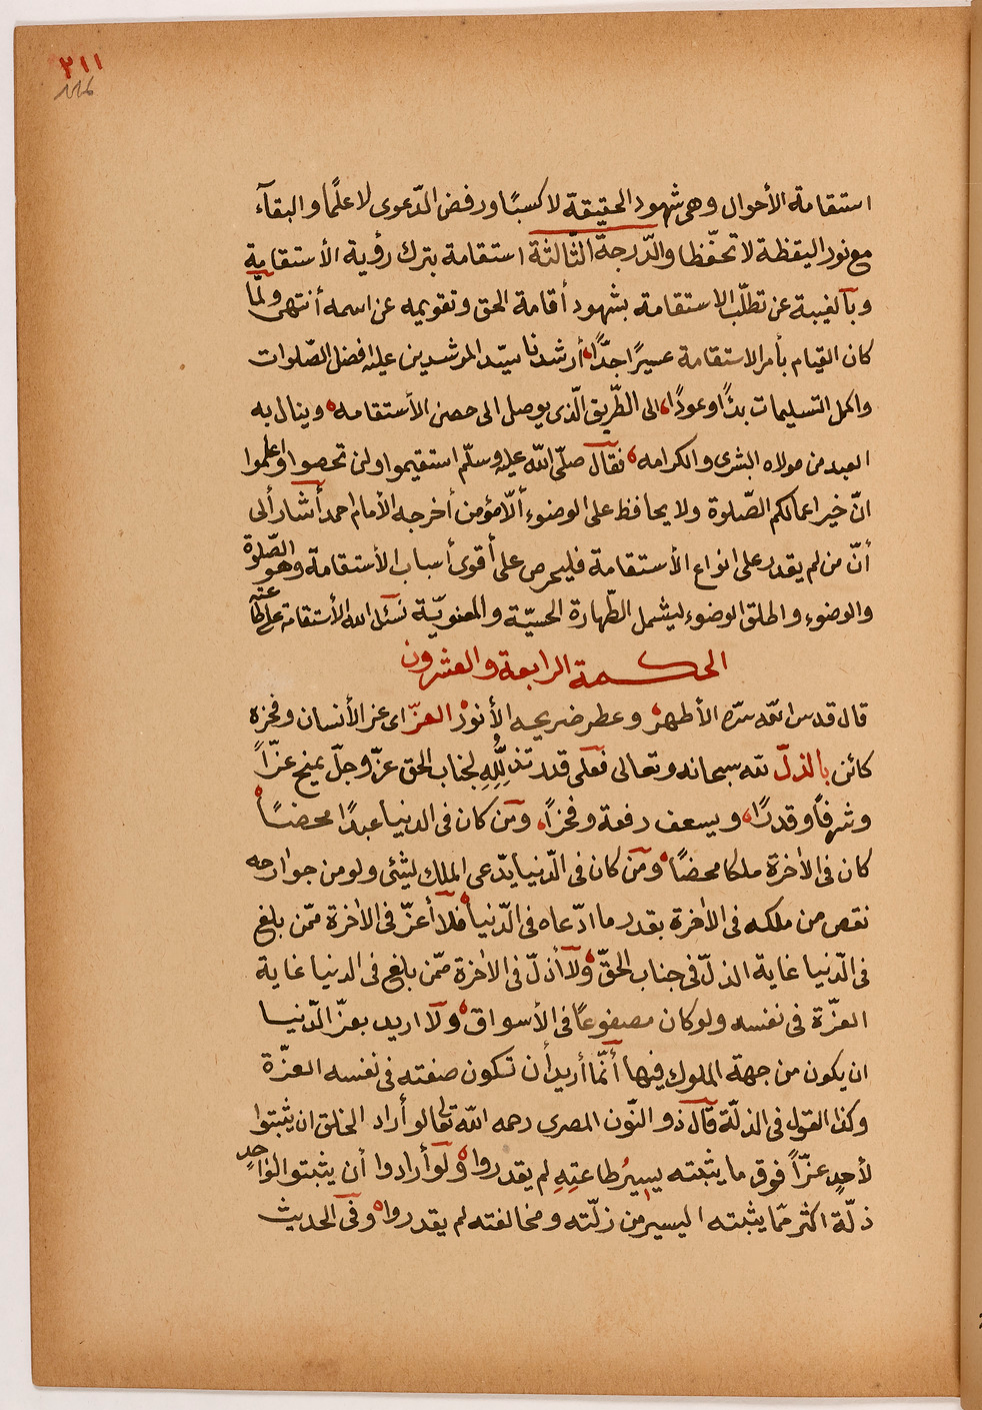 ٢١١
استقامة الأحوال وهى شهود الحقيقة لا كسبًا ورفض الدّعوى لا علمًا والبقآء
مع نور اليقظة لا تحفّظا والدّرجة الثّالثة استقامة بترك رؤية الأستقامة
وبآلغيبة عن تطلّب الاستقامة بشهود أقامة الحق وتقويمه عن اسمه أنتهى ولمّا
كان القيام بأمر الاستقامة عسيرًا جدًّا أرشدنا سيّد المرشدين عليه افضل الصّلوات
واكمل التسليمات بدءًا وعودًا الى الطّريق الّذى يوصل الى حصن الأستقامه وينال به
العبد من مولاه البشرى والكرامه فقال صلّى الله عليه وسلّم استقيموا ولن تحصوا واعلموا
انّ خير اعمالكم الصّلوة ولا يحافظ على الوضوء ألّا مؤمن أخرجه الأمام احمد أشار ألى
أنّ من لم يقدر على انواع الأستقامة فليحرص على أقوى أسباب الأستقامة وهو الصّلوة
والوضوء واطلق الوضوء ليشمل الطّهارة الحسيّة والمعنويّة نسئل الله الأستقامة على طاعته
الحكمة الرابعة والعشرون
قال قدس الله سرّه الأطهر وعطر ضريحه الأنور العزّ اى عز الأنسان وفخره
كائن بالذلّ لله سبحانه وتعالى فعلى قدر تذلّلِهِ لجناب الحق عزّ وجلّ يمنح عزّاً
وشرفاً وقدرًا ويسعف رفعة وفخراً ومن كان فى الدنيا عبدًا محضًا
كان فى الاخرة ملكا محضًا ومن كان فى الدّنيا يدّعى الملك لشئى ولو من جوارحه
نقص من ملكه فى الاخرة بقدر ما ادّعاه فى الدّنيا فلا أعزّ فى الاخرة ممّن بلغ
فى الدّنيا غاية الذلّ فى جناب الحقّ ولا أذلّ فى الاخرة ممّن بلغ فى الدنيا غاية
العزّة فى نفسه ولو كان مصفوعًا فى الأسواق ولا اريد بعزّ الدّنيا
ان يكون من جهة الملوك فيها أنّما أريد أن تكون صفته فى نفسه العزّة
وكذا القول فى الذلّة قال ذو النّون المصرى رحمه الله تعالى لو أراد الخلق ان يثبتوا
لأحدٍ عزّاً فوق ما يثبته يسيرُ طاعتِهِ لم يقدروا ولو أرادوا أن يثبتوا لواحدٍ
ذلّة اكثر ممّا يثبته اليسير من زلّته ومخالفته لم يقدروا وفى الحديث